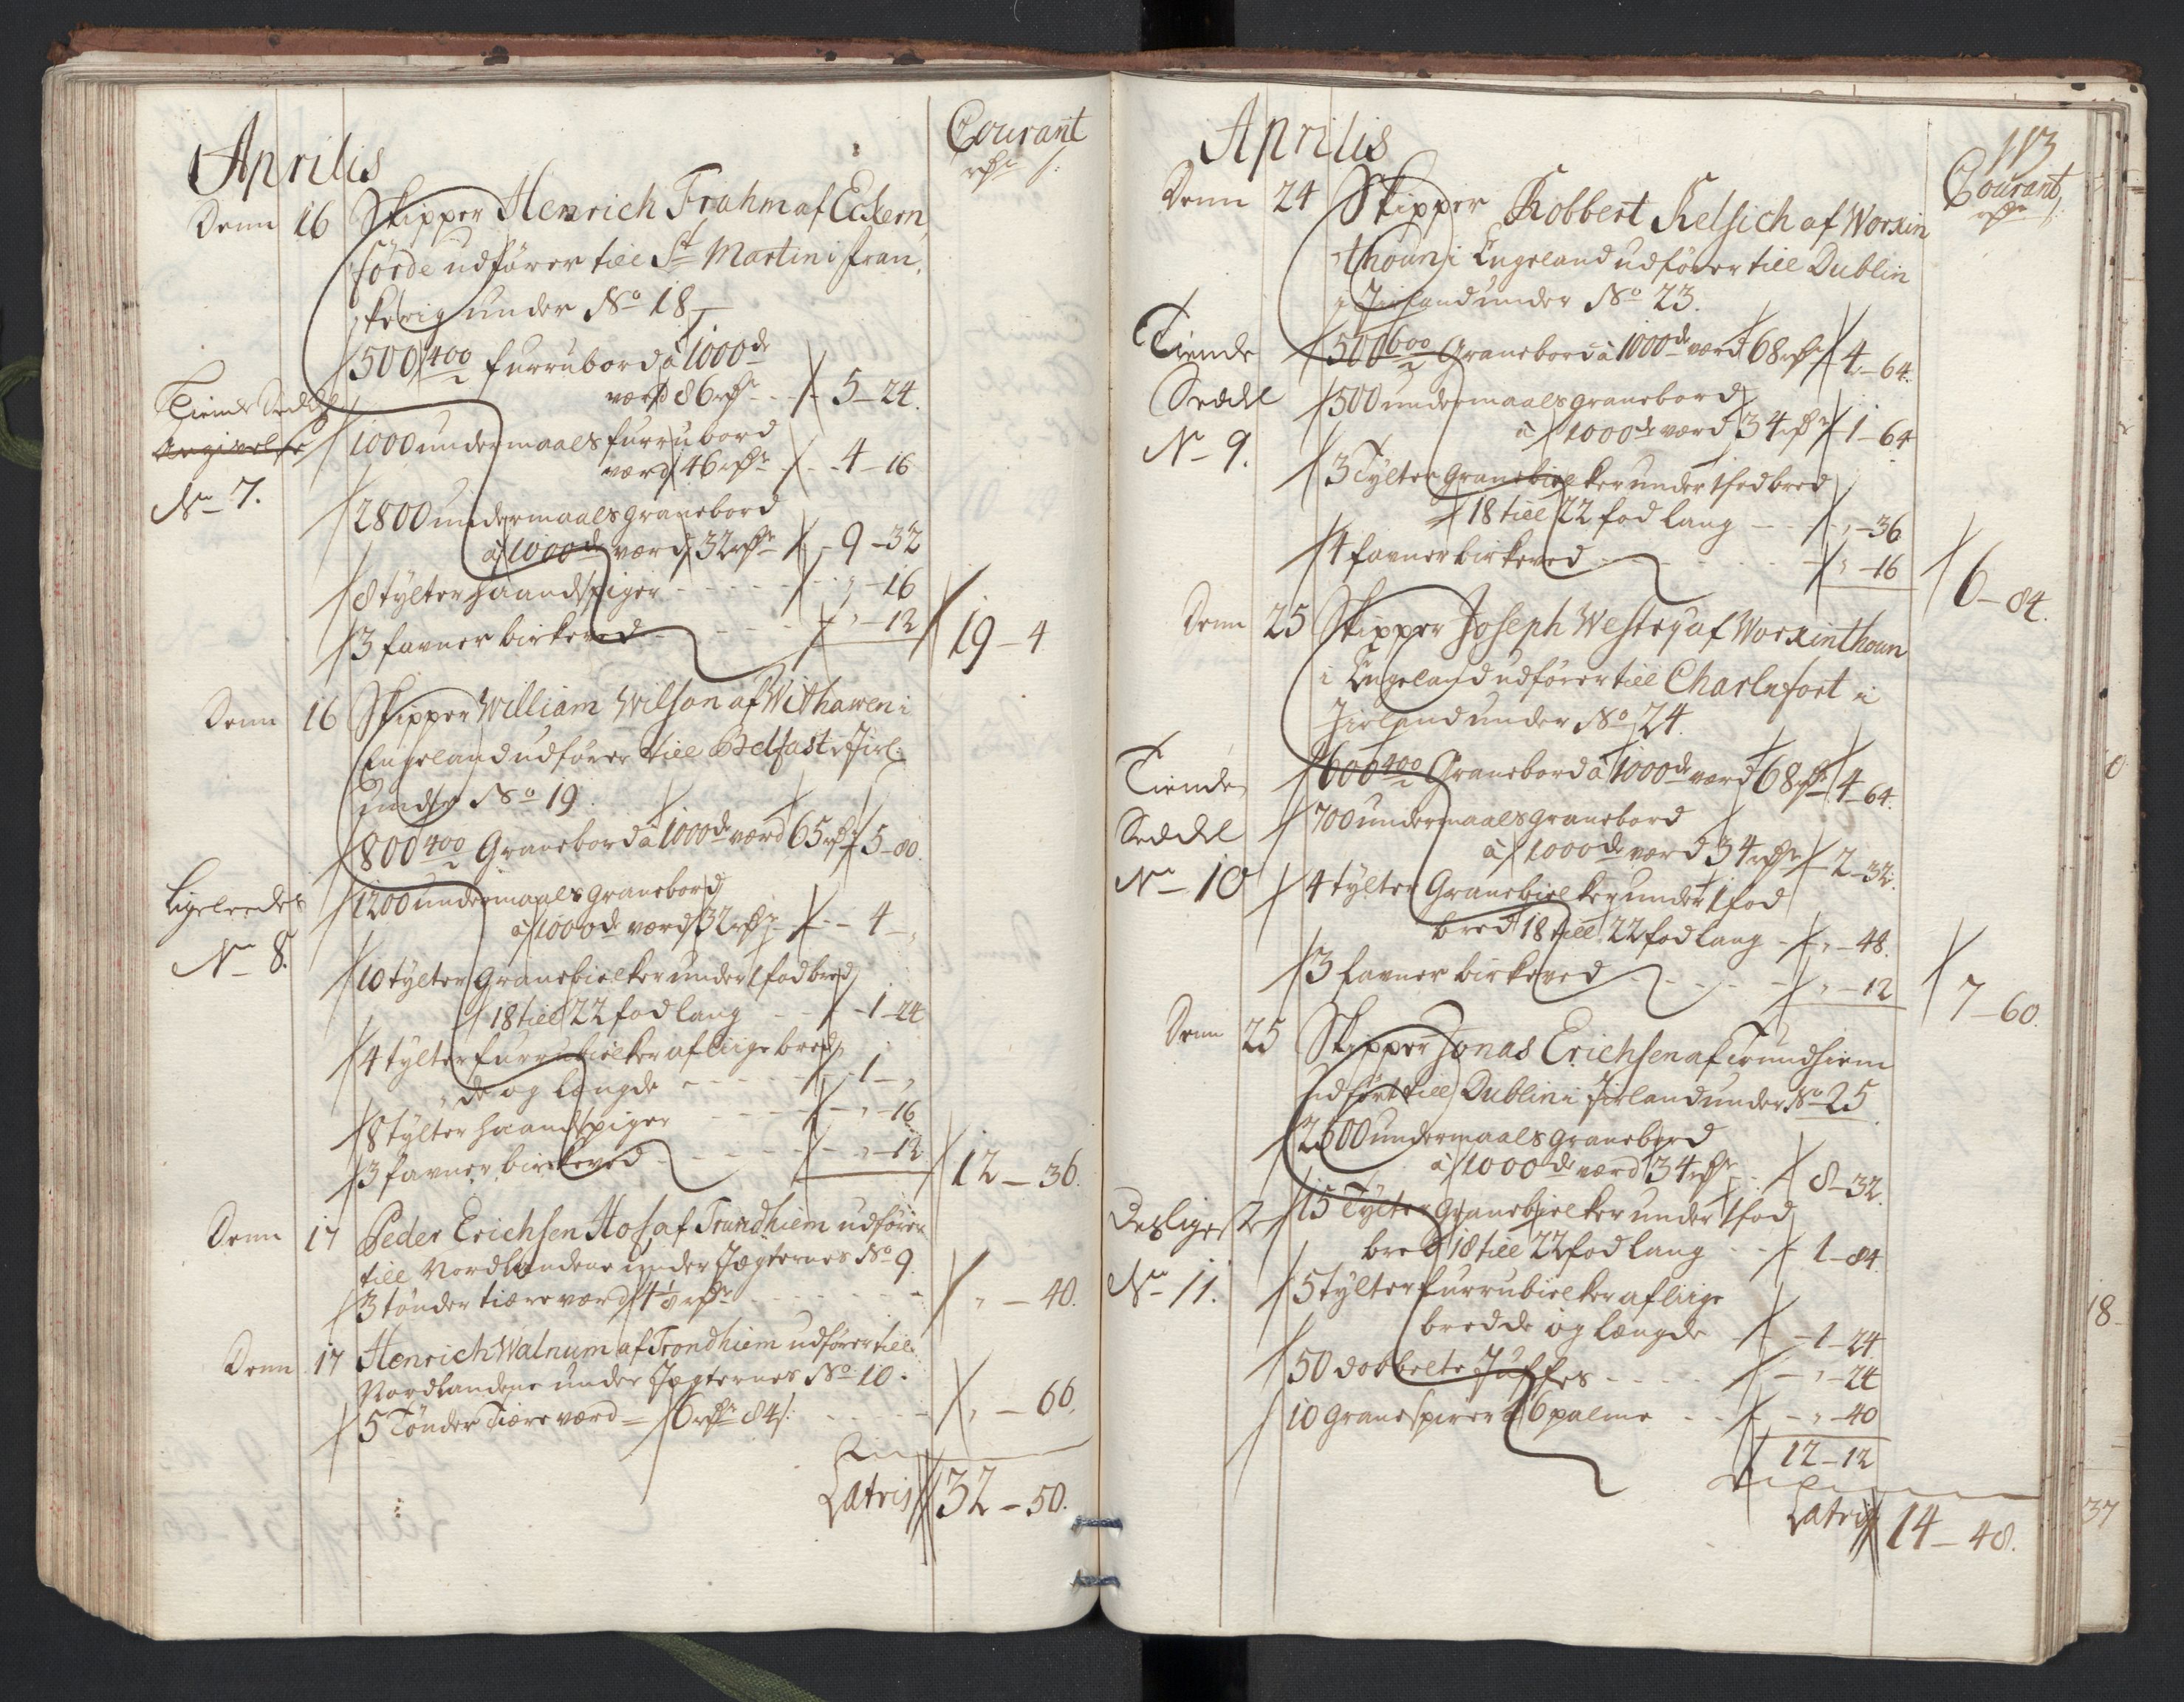 Aprilis
Courant
rdr ß:
Denn 16 Skipper Henrich Frahm af Eckern,
förde udfører till St Martin i Fran,
,kerig under No 18
500 400 furrubord à 1000de
værd 86 rdr - - 5 - 24.
Tiende Seddel
Angivelse
No 7.
1000 undermaals furrubord
værd 46 rdr - - 4 - 16
2800 undermaals granebord
à 1000de værd 32 rdr - 9 - 32
8 tylter haandspiger - - - - „ - 16
3 favner birkeved - - - - „ - 12
19 - 4
Denn 16 Skipper William Wilson af Withawen i
Engeland udfører till Belfast i Jirl:
under No 19.
800 400 Granebord à 1000de værd 65 rdr 5 - 80.
Ligeleedes
No 8.
1200 undermaals granebord
à 1000de værd 32 rdr - - 4 - „
10 tylter Granebielker under 1 fod bred
18 till 22 fod lang - - 1 - 24
4 tylter furrubielker af liige bred,
,de og længde - - - - 1 - „
8 tylter haandspiger - - - - „ - 16
3 favner birkeved - - - - „ - 12
12 - 36.
Denn 17 Peder Erichsen Hof af Trundhiem udfører
till Nordlandene under Jægternes No 9.
3 tønder tiære værd 4 1/8 rdr - - - - „ - 40.
Denn 17 Henrich Walnum af Trondhiem udfører till
Nordlandene under Jægternes No 10.
5 Tønder Tiære værd = 6 rdr 84 ß: - - - „ - 66.
Latris 32 - 50.
113
Aprilis
Courant
rdr ß:
Denn 24 Skipper Robbert Kelsich af Worxin
,thoun i Engeland udfører till Dublin
i Jirland under No 23.
Tiende
Seddel
No 9.
500 600 Granebord à 1000de værd 68 rdr 4 - 64.
500 undermaals granebord
à 1000de værd 34 rdr - 1 - 64
3 Tylter Granebielker under 1 fod bred
18 till 22 fod lang - - - „ - 36
4 favner birkeved - - - - „ - 16
6 - 84.
Denn 25 Skipper Joseph Westey af Worxinthoun
i Engeland udfører till Charlefort i
Jirland under No 24.
Tiende
Seddel
No 10
600 400 Granebord à 1000de værd 68 rdr 4 - 64.
700 undermaals granebord
à 1000de værd 34 rdr - 2 - 32.
4 tylter Granebielker under 1 fod
bred 18 till 22 fod lang - „ - 48.
3 favner birkeved - - - - „ - 12
7 - 60.
Denn 25 Skipper Jonas Erichsen af Trundhiem
udført till Dublin i Jirland under No 25
2500 undermaals granebord
à 1000de værd 34 rdr - - 8 - 32.
Desligeste
No 11.
15 Tylter Granebielker under 1 fod
bred 18 till 22 fod lang - - 1 - 84.
5 tylter furrubielker af liige
bredde og længde - - 1 - 24
50 dobbelte Juffes - - - - „ - 24
10 Granespirer à 6 palme - - „ - 40
12 - 12
Latris 14 - 48.